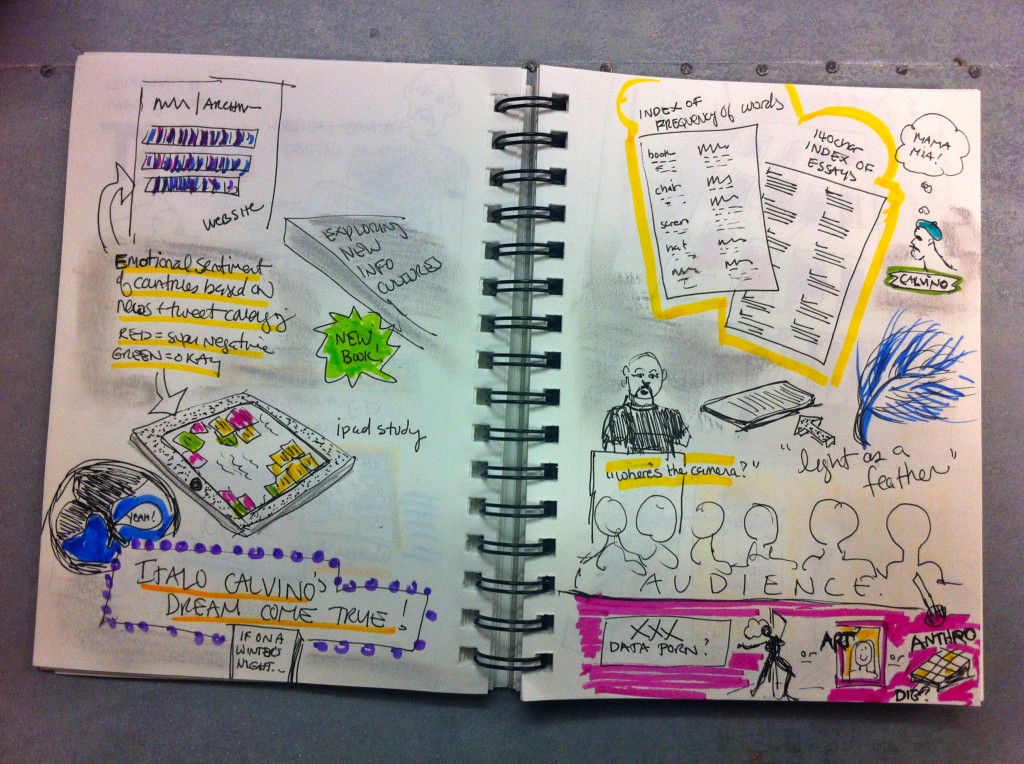 ARCHIV
WEBSITE
Emotional sentiment
of countries based on
news + tweet
RED = super negative
GREEN = OKAY
EXPLORING
NEW
INFO
CULTURES
NEW
BOOK
ipad study
YEAH!
ITALO CALVINO'S
DREAM COME TRUE!
IF ON A
WINTER'S
NIGHT...
INDEX OF
FREQUENCY of words
book
chair
screen
hat
140char
INDEX OF
ESSAYS
MAMA
MIA!
CALVINO
"where's the camera?"
"light as a
feather"
AUDIENCE
XXX
DATA PORN?
or
ART
or
ANTHRO
DIG?